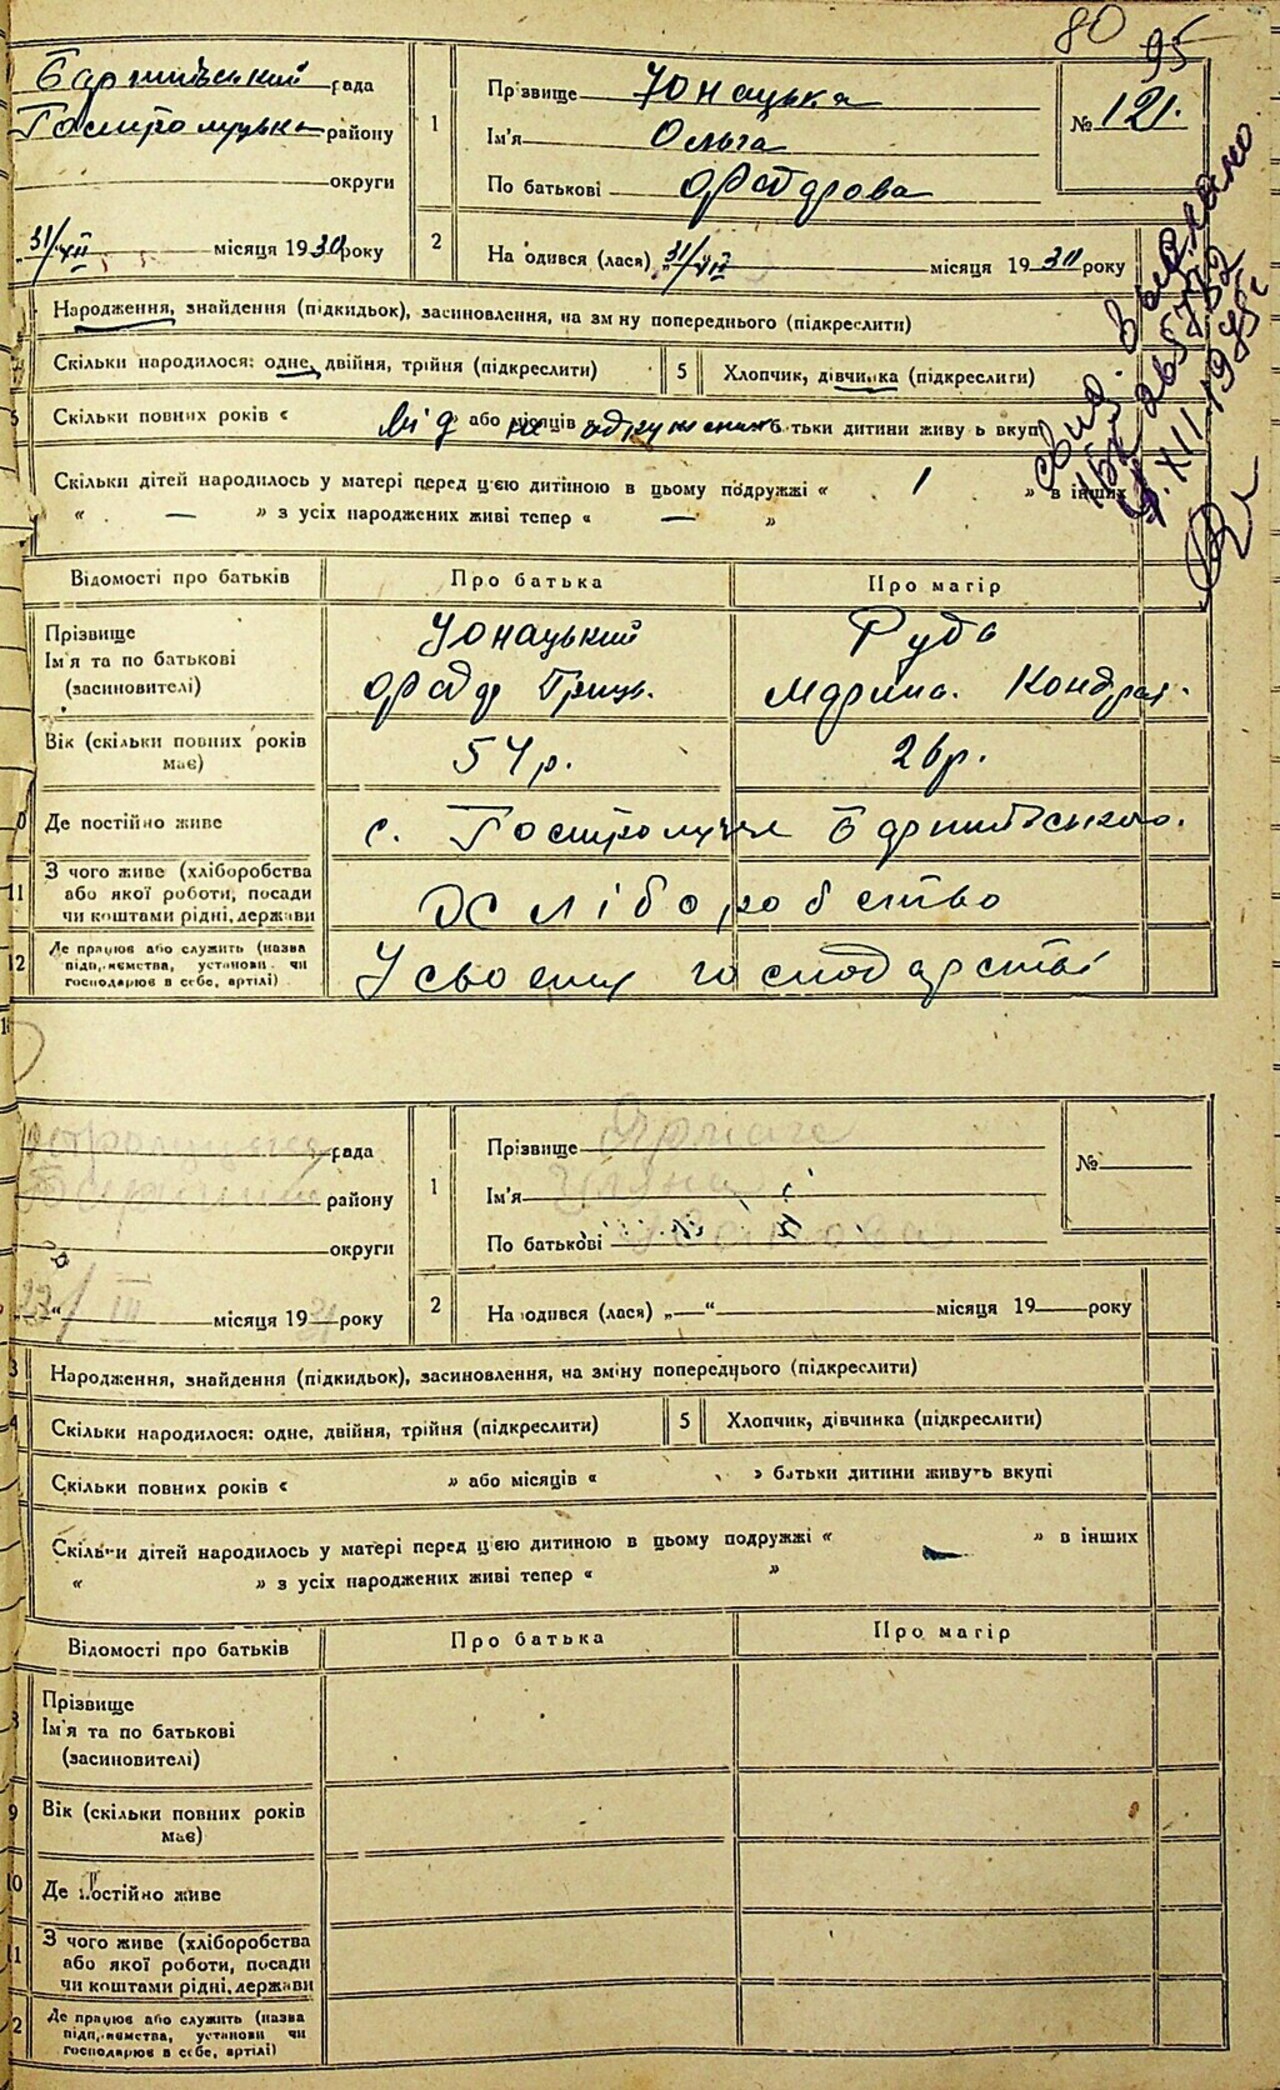 80
95
Баришівський рада
Гостролуцька району
округи
„31/XII місяця 1930 року
1
Прізвище Юнацька
Ім'я Ольга
По батькові Федорова
№ 121.
2
На одився (лася) „31/XII місяця 1930 року
Народження, знайдення (підкидьок), засиновлення, на зм ну попереднього (підкреслити)
Скільки народилося: одне, двійня, трійня (підкреслити)
5
Хлопчик, дівчинка (підкреслити)
Скільки повних років « від або місяців одруження б тьки дитини живу ь вкупі
Скільки дітей народилось у матері перед цією дитиною в цьому подружжі « 1 » в інших
« — » з усіх народжених живі тепер « — »
Свид. выслано
265732
XII 1975 г
Відомості про батьків
Про батька
Про матір
Прізвище
Ім'я та по батькові
(засиновителі)
Юнацький
Федор Гриць.
Руда
Марина. Кондрат.
Вік (скільки повних років
має)
54р.
26р.
Де постійно живе
с. Гостролуччя Баришівського.
11
З чого живе (хліборобства
або якої роботи, посади
чи коштами рідні, держави
Хліборобство
12
Де працює або служить (назва
підприємства, установи чи
господарює в себе, артілі)
У своєму господарстві
рада
району
округи
„22“/III місяця 1931 року
1
Прізвище Ярмаче
Ім'я Уляна
По батькові Іванова
№
2
На одився (лася) „—“ місяця 19 року
3
Народження, знайдення (підкидьок), засиновлення, на зміну попереднього (підкреслити)
4
Скільки народилося: одне, двійня, трійня (підкреслити)
5
Хлопчик, дівчинка (підкреслити)
Скільки повних років « » або місяців « » батьки дитини живуть вкупі
Скільки дітей народилось у матері перед цією дитиною в цьому подружжі « » в інших
« » з усіх народжених живі тепер « »
Відомості про батьків
Про батька
Про матір
8
Прізвище
Ім'я та по батькові
(засиновителі)
9
Вік (скільки повних років
має)
10
Де постійно живе
11
З чого живе (хліборобства
або якої роботи, посади
чи коштами рідні, держави
2
Де працює або служить (назва
підприємства, установи чи
господарює в себе, артілі)